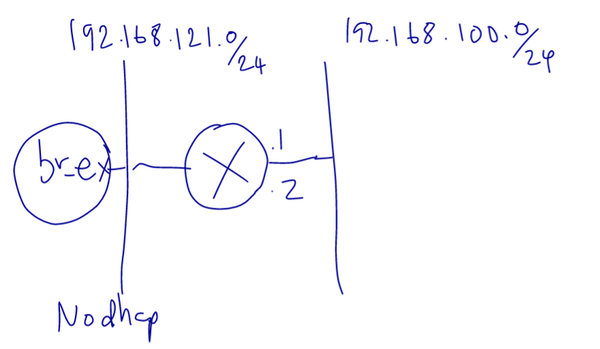 192.168.121.0/24
192.168.100.0/24
br-ex
X
.1
.2
Nodhcp